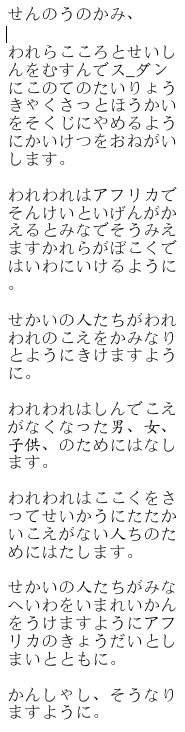 せんのうのかみ、
われらこころとせいし
んをむすんでス_ダン
にこのてのたいりょう
きゃくさっとほうかい
をそくじにやめるよう
にかいけつをおねがい
します。
われわれはアフリカで
そんけいといげんがか
えるとみなでそうみえ
ますかれらがぼこくで
はいわにいけるように
。
せかいの人たちがわれ
われのこえをかみなり
とようにきけますよう
に。
われわれはしんでこえ
がなくなった男、女、
子供、のためにはなし
ます。
われわれはここくをさ
ってせいかうにたたか
いこえがない人ちのた
めにはたします。
せかいの人たちがみな
へいわをいまれいかん
をうけますようにアフ
リカのきょうだいとし
まいとともに。
かんしゃし、そうなり
ますように。